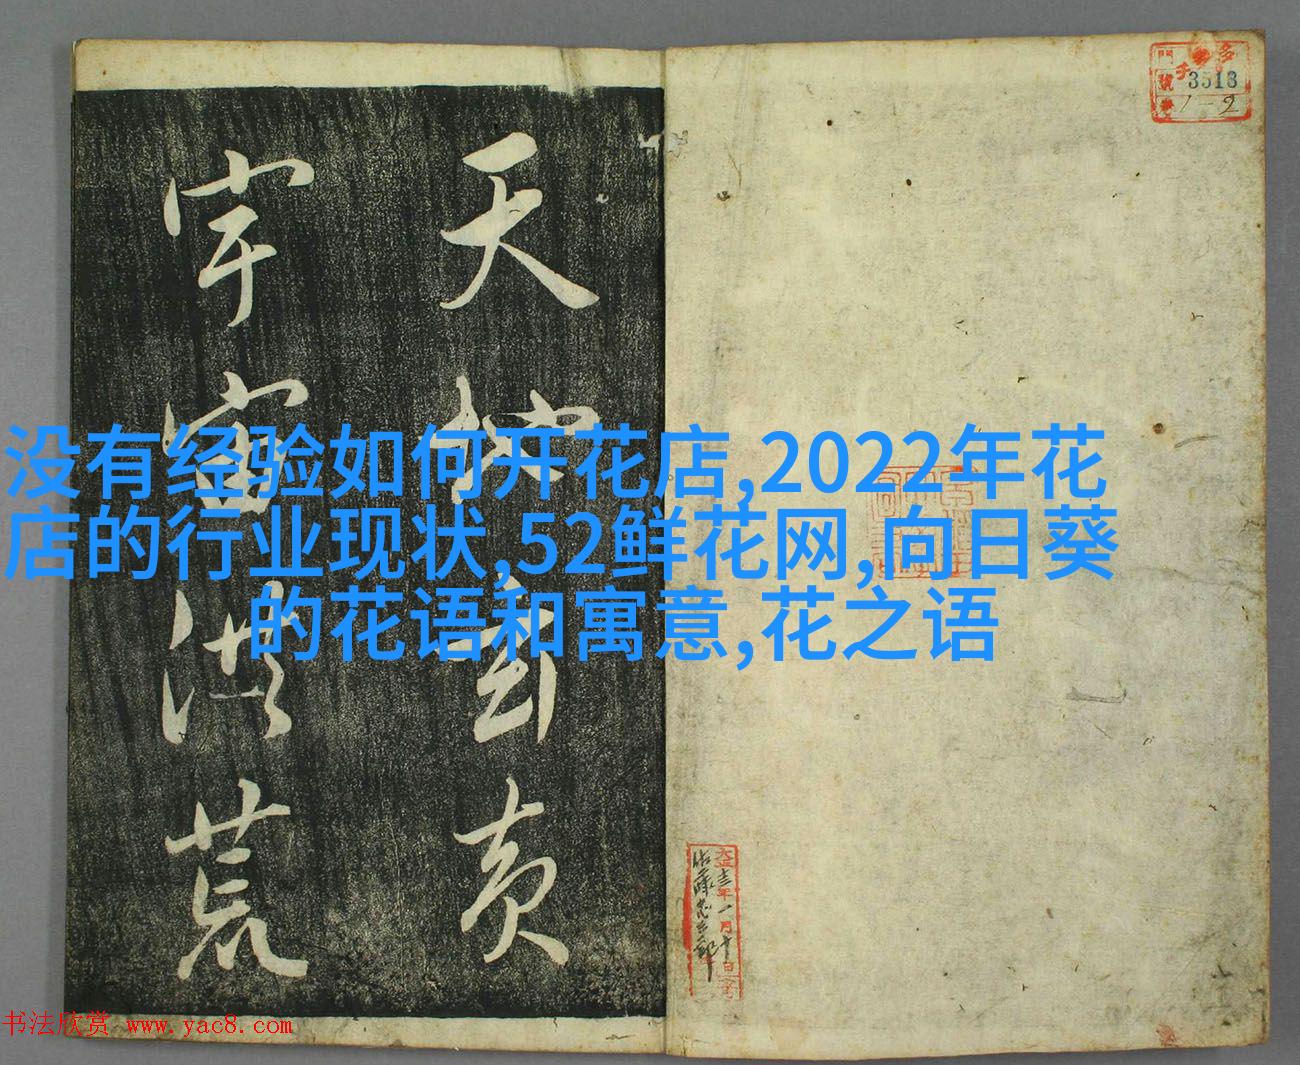 天地玄黄
宇宙洪荒
3513
1-2
没有经验如何开花店,2022年花
店的行业现状,52鲜花网,向日葵
的花语和寓意,花之语
大正十三年一月十日
书法欣赏 www.yac8.com